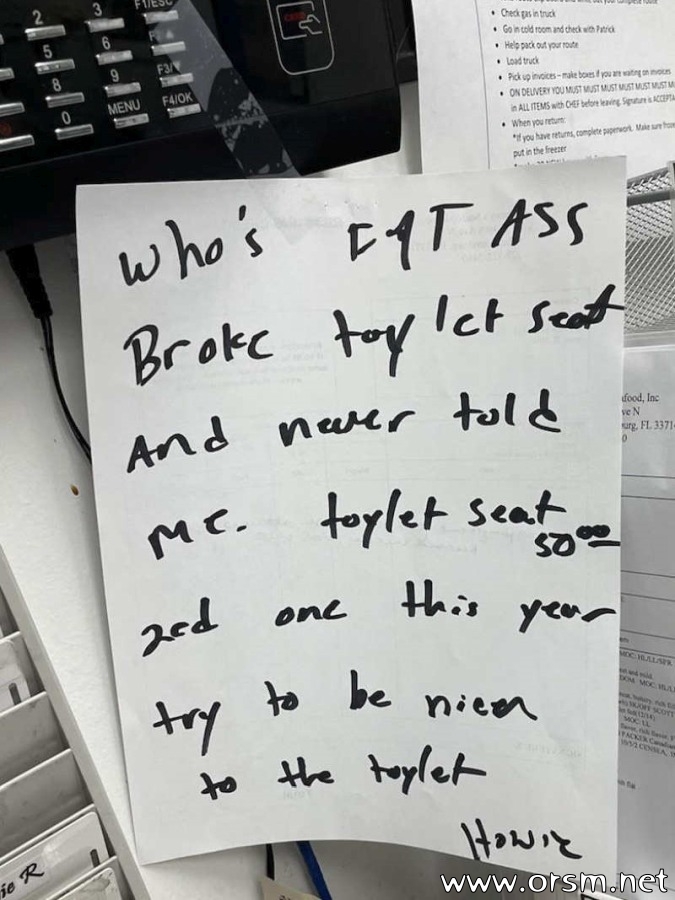 2 3 F1/ESC
5 6
8 9 F3/
0 MENU F4/OK
• Check gas in truck
• Go in cold room and check with Patrick
• Help pack out your route
• Load truck
• Pick up invoices – make boxes if you are waiting on invoices
• ON DELIVERY YOU MUST MUST MUST MUST MUST
in ALL ITEMS with CHEF before leaving. Signature is ACCEPTA
• When you return:
*If you have returns, complete paperwork. Make sure froze
put in the freezer
who's FAT ASS
Broke toylet seat
And never told
me. toylet seat
50.00
2ed one this year
try to be nicer
to the toylet
Howie
afood, Inc
ve N
urg, FL 3371
0
MOC: HL/LL/SFR
MOC: LL
PACKER Canadian
ie R
www.orsm.net